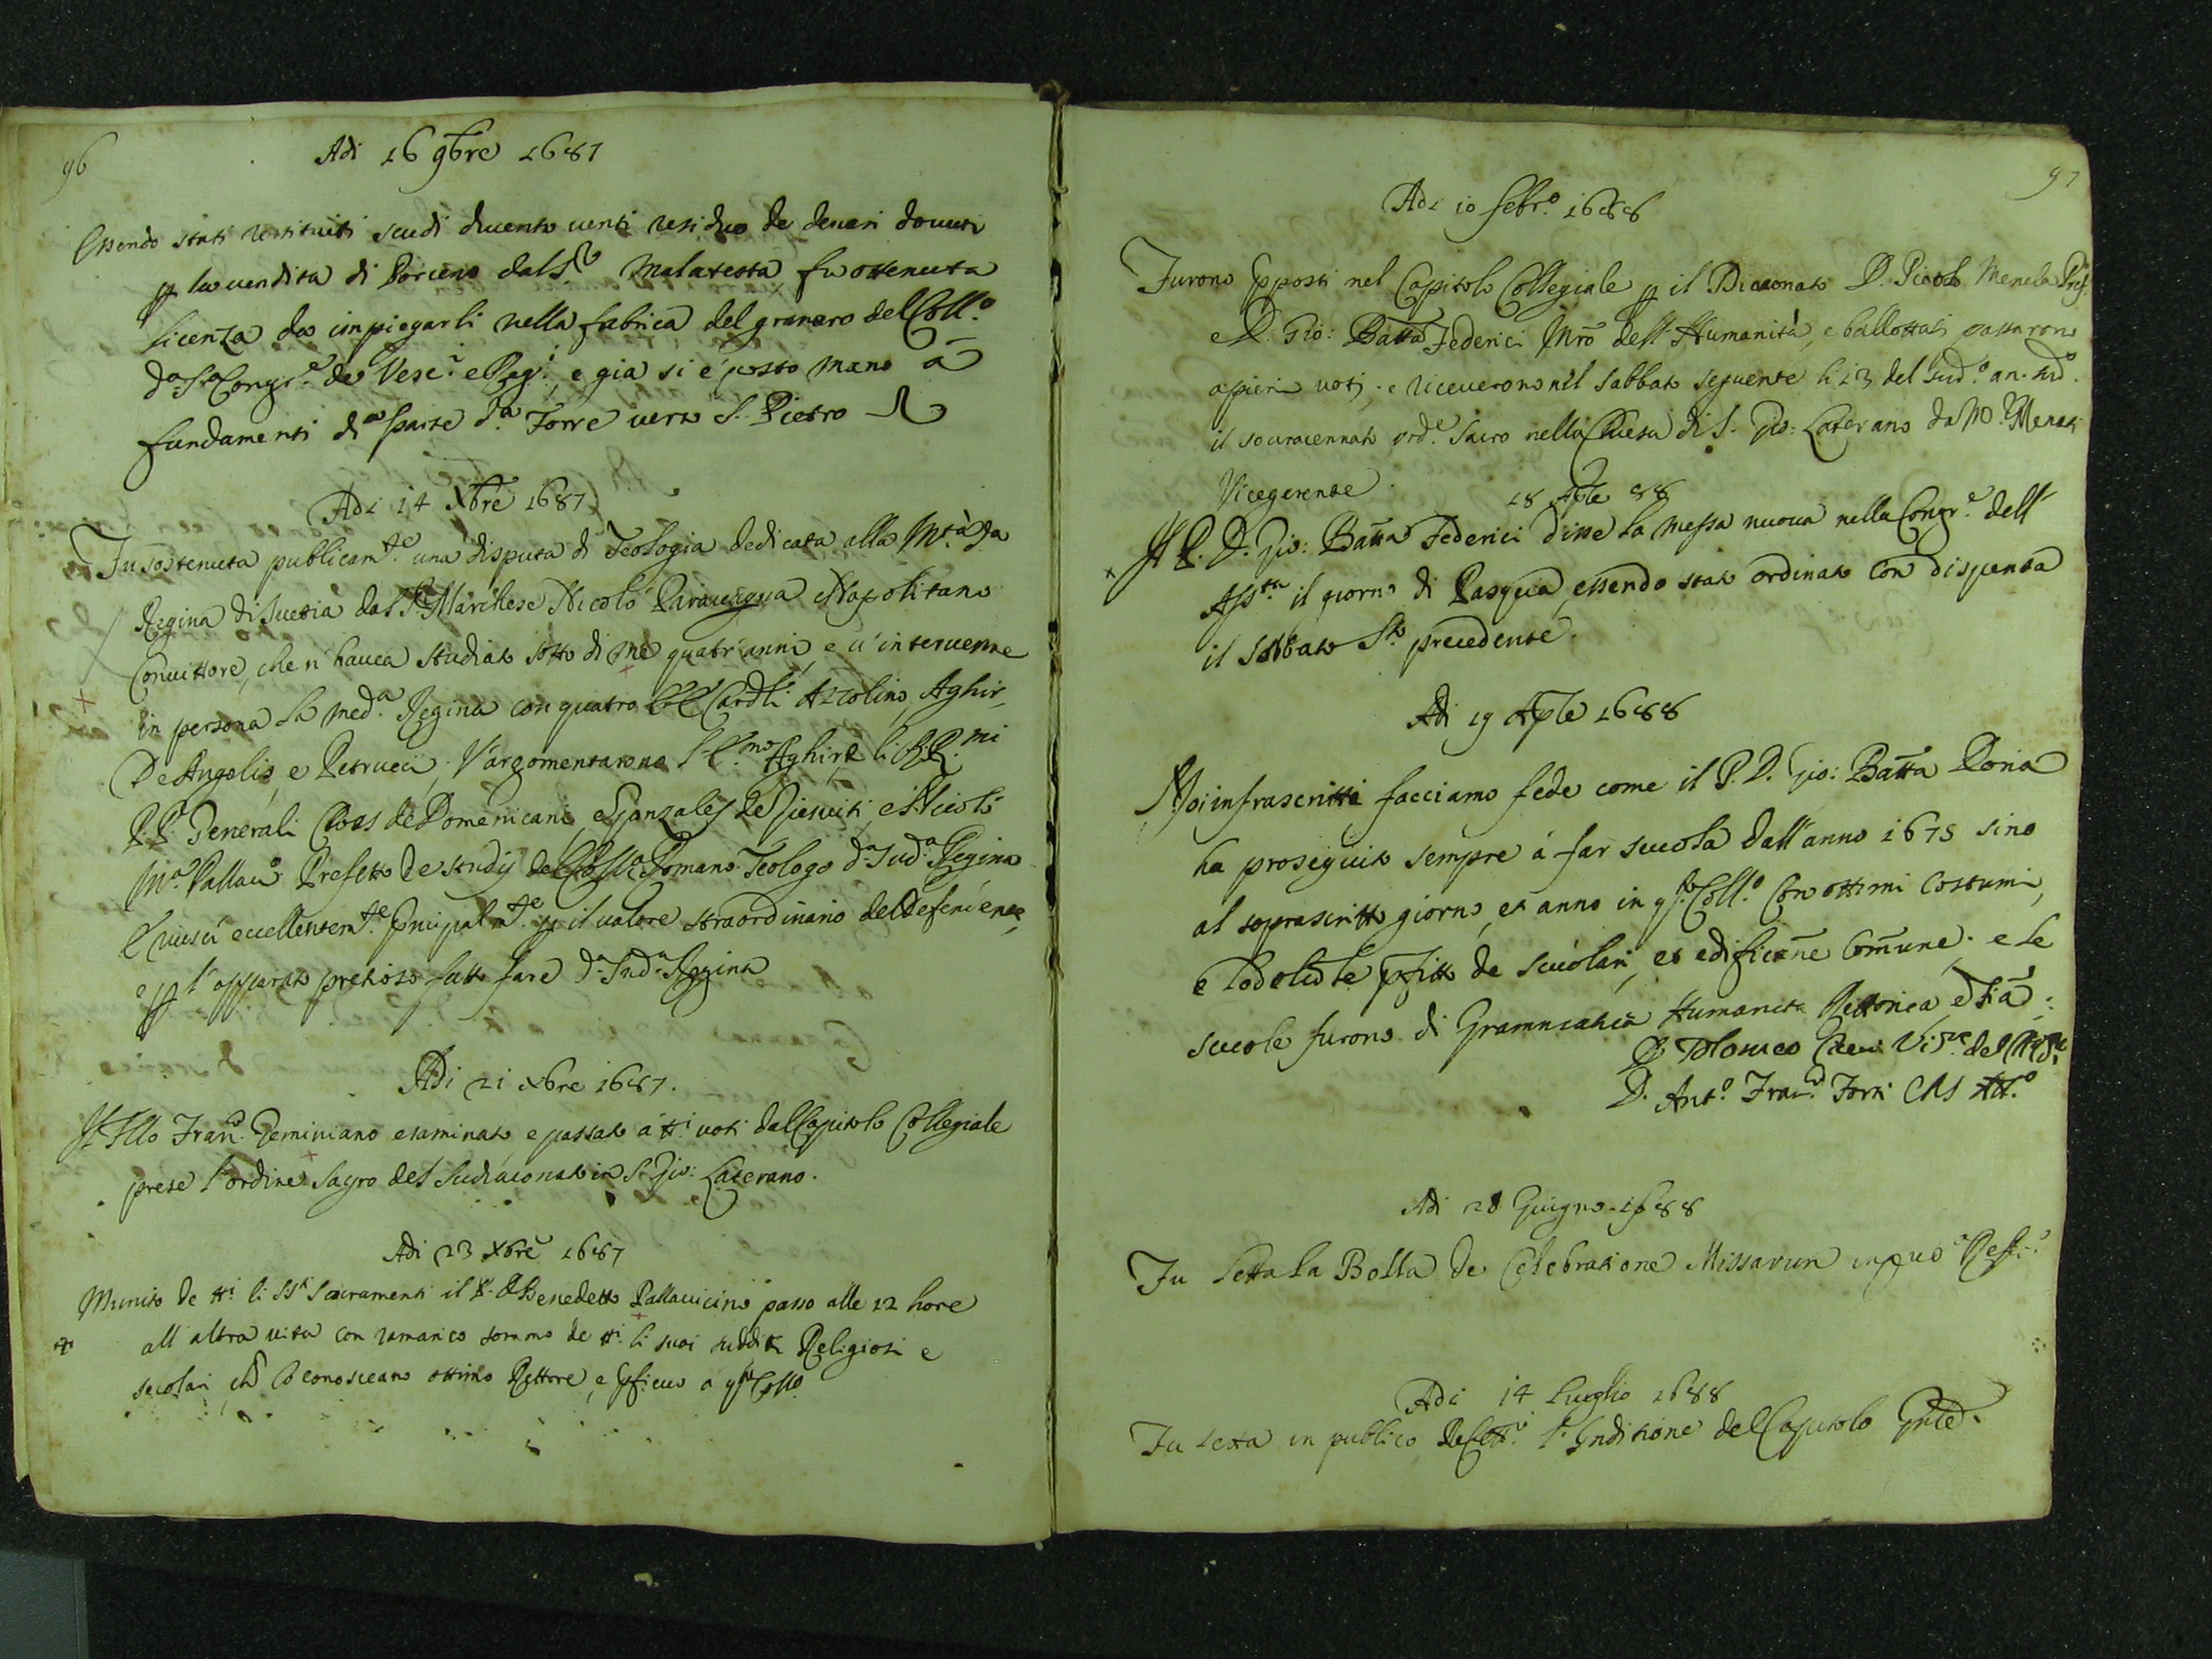 96
Adi 16 9bre 1687
Essendo stati restituiti scudi ducento venti residuo de denari dovuti
p la vendita di Porcena dal S.r Malatesta fu ottenuta
licenza da impiegarli nella fabrica del granaro del Coll.o
d.a S.a Congr.e de Vesc.i e Reg.i, e già si è posto mano à
fundamenti d.a parte d.a Torre verso S. Pietro
Adi 14 Xbre 1687
Fu sostenuta publicam.te una disputa di Teologia dedicata alla M.tà da
Regina di Suetia dal S. Marchese Nicolò Paravagna Napolitano
Convittore, che n'havea studiato sotto di me quatr'anni, e v'intervenne
in persona la med.a Regina con quatro Cardli Azzolino, Aghir,
De Angelis, e Petrucci; V'argomentarono l'E.mo Aghir, e li R.R.mi
P.P. Generali Cloes de Domenicani, e Gonzales de Giesuiti, e Nicolò
M.a Pallav.o Prefetto de studij del Coll.o Romano Teologo d.a Sud.a Regina
E riuscì eccellentem.te Pncipalm.te p il valore straordinario del Defendente,
e p l'apparato pretioso fatto fare d.a Sud.a Regina
Adi 21 xbre 1687.
Il Fllo Fran.o Geminiano esaminato, e passato à tt.i voti dal Capitolo Collegiale
prese l'ordine sagro del Sudiaconato in S. Gio: Laterano.
Adi 23 Xbre 1687
Munito de tt.i li SS.i Sacramenti il P. D. Benedetto Pallavicino passo alle 12 hore
all altra vita con ramarico sommo de tt.i li suoi sudditi Religiosi e
secolari, che lo conosceano ottimo Rettore, e pficuo a qto Coll.o
97
Adi 10 Febr.o 1688
Furono pposti nel Capitolo Collegiale p il Diaconato D. Picolo Menela Pref.
e D. Gio: Batta Federici Mro dell'Humanità, e ballottati passarono
a pieni voti, e riceverono nel Sabbato seguente li 13 del sud.o an. sud.o
il souracennato ord.e Sacro nella Chiesa di S. Gio: Laterano da M.o Menati
Vicegerente.
18 Aple 88
Il P. D. Gio: Batta Federici disse la messa nuova nella Congr.e dell'
Ass.ta il giorno di Pasqua, essendo stato ordinato con dispensa
il Sabbato S.to precedente.
Adi 19 Aple 1688
Noi infrascritti facciamo fede come il P. D. Gio: Batta Doria
ha proseguito sempre à far scuola dall'anno 1675 sino
al soprascritto giorno, et anno in qto Coll.o con ottimi costumi,
e lodolible pfitto de scuolari, et edificatne comune. e le
scuole furono di Grammatica Humanità Rettorica, e
D. Tolomeo Vi.re del
D. Ant.o Fran.o Torri CRS Att.o
Adi 28 Guigno 1688
Fu letta la Bolla de Celebratione Missarum in puo Reft.o
Adi 14 Luglio 1688
Fu letta in publico Refett.o l'Inditione del Capitolo Gnle.